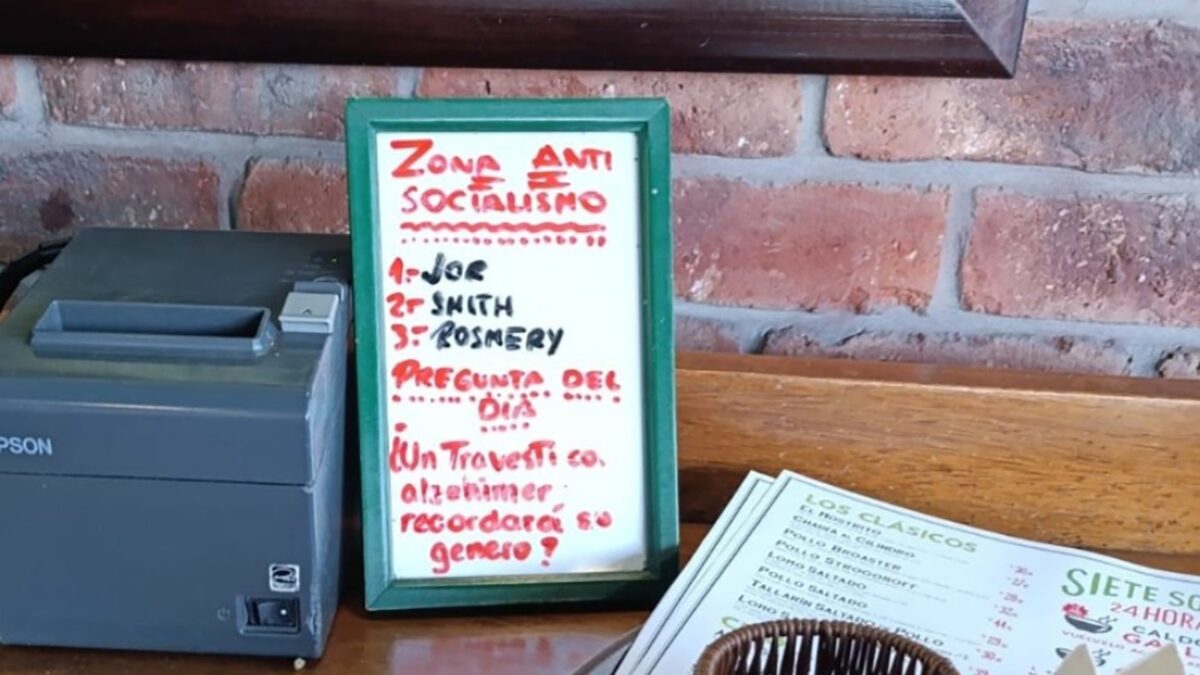 ZONA ANTI
SOCIALISMO
1.- JOR
2- SMITH
3.- ROSMERY
PREGUNTA DEL
DIA
¿Un Travesti co.
alzehimer
recordará su
genero?
PSON
LOS CLÁSICOS
EL HOSTRITO
CHAUFA AL CILINDRO
POLLO BROASTER
POLLO STROGONOFF
LOMO SALTADO
POLLO SALTADO
TALLARÍN SALTADO DE POLLO
LOMO S
SIETE SO
24 HORA
CALD
GALL
VUÉLVELO